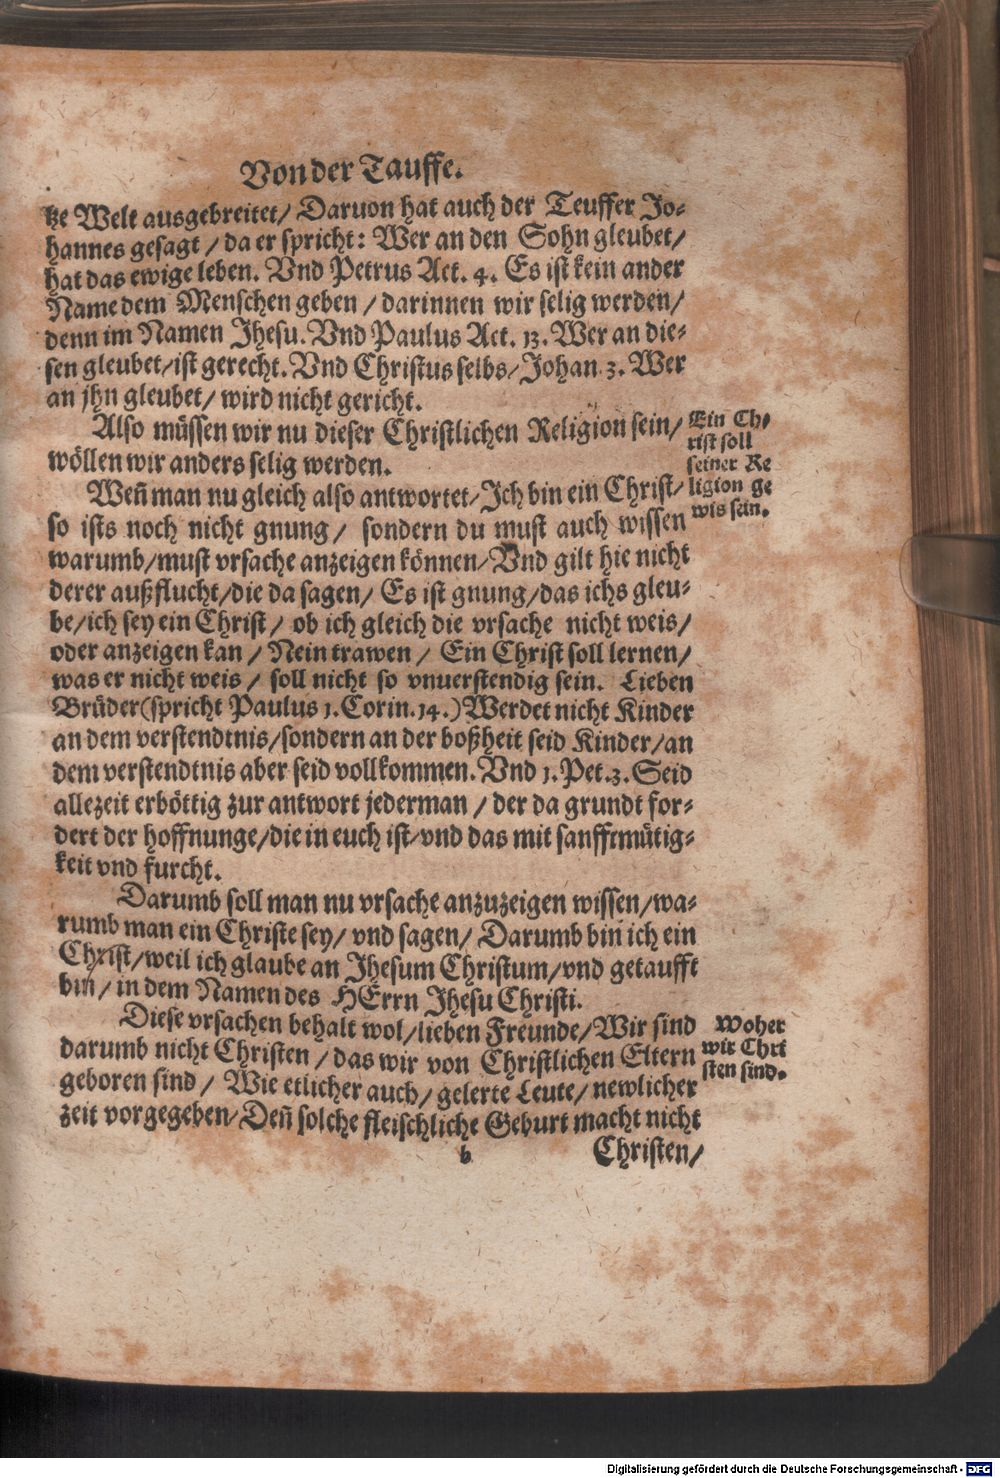 Von der Tauffe.
tze Welt ausgebreitet/ Daruon hat auch der Teuffer Jo-
hannes gesagt / da er spricht: Wer an den Sohn gleubet/
hat das ewige leben. Vnd Petrus Act. 4. Es ist kein ander
Name dem Menschen geben / darinnen wir selig werden/
denn im Namen Jhesu. Vnd Paulus Act. 13. Wer an die-
sen gleubet/ist gerecht. Vnd Christus selbs/Johan 3. Wer
an jhn gleubet/ wird nicht gericht.
Also müssen wir nu dieser Christlichen Religion sein/
wöllen wir anders selig werden.
Ein Ch-
rist soll
seiner Re
ligion ge
wis sein.
Weñ man nu gleich also antwortet/Ich bin ein Christ/
so ists noch nicht gnung/ sondern du must auch wissen
warumb/must vrsache anzeigen können/Vnd gilt hie nicht
derer außflucht/die da sagen/ Es ist gnung/das ichs gleu-
be/ich sey ein Christ/ ob ich gleich die vrsache nicht weis/
oder anzeigen kan / Nein trawen / Ein Christ soll lernen/
was er nicht weis / soll nicht so vnuerstendig sein. Lieben
Brüder(spricht Paulus 1. Corin. 14.) Werdet nicht Kinder
an dem verstendtnis/sondern an der boßheit seid Kinder/an
dem verstendtnis aber seid vollkommen. Vnd 1. Pet. 3. Seid
allezeit erböttig zur antwort jederman / der da grundt for-
dert der hoffnunge/die in euch ist/vnd das mit sanfftmütig-
keit vnd furcht.
Darumb soll man nu vrsache anzuzeigen wissen/wa-
rumb man ein Christe sey/ vnd sagen/ Darumb bin ich ein
Christ/weil ich glaube an Jhesum Christum/vnd getaufft
bin/ in dem Namen des HErrn Jhesu Christi.
Diese vrsachen behalt wol/lieben Freunde/Wir sind
darumb nicht Christen / das wir von Christlichen Eltern
geboren sind / Wie etlicher auch/ gelerte Leute/ newlicher
zeit vorgegeben/Deñ solche fleischliche Geburt macht nicht
Woher
wir Chri
sten sind.
b
Christen/
Digitalisierung gefördert durch die Deutsche Forschungsgemeinschaft - DFG